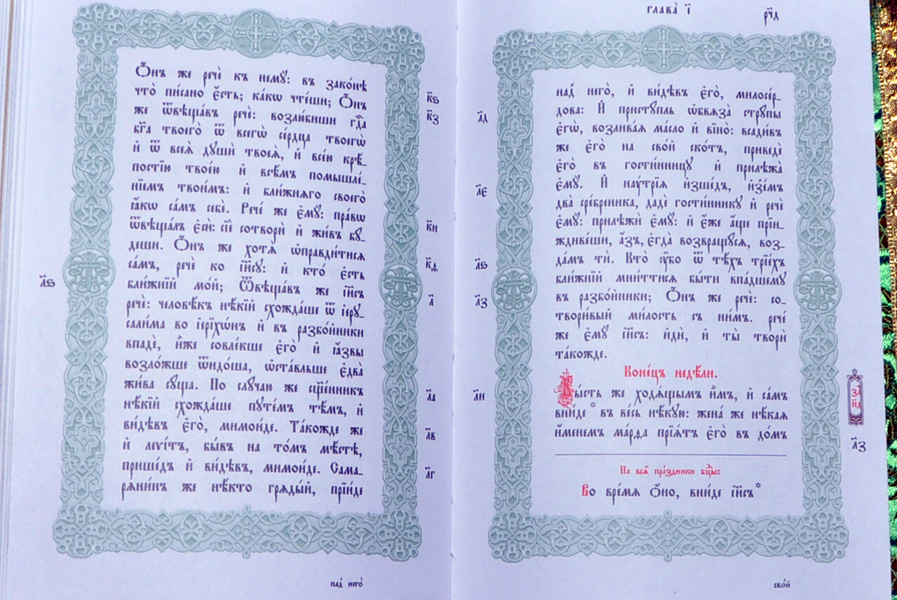 Ѻ҆́нъ же речѐ къ немꙋ̀: въ зако́нѣ
что̀ пи́сано є҆́сть; ка́кѡ чте́ши; Ѻ҆́нъ
же ѿвѣща́въ речѐ: возлю́биши гдⷭ҇а
бг҃а твоего̀ ѿ всегѡ̀ се́рдца твоегѡ̀
и҆ ѿ всеѧ̀ дꙋшѝ твоеѧ̀, и҆ все́ю крѣ́-
постїю твое́ю и҆ всѣ́мъ помышле́-
нїемъ твои́мъ: и҆ бли́жнѧго своего̀
ꙗ҆́кѡ са́мъ себѐ. Рече́ же є҆мꙋ̀: пра́вѡ
ѿвѣща́лъ є҆сѝ: сїѐ сотворѝ и҆ жи́въ бꙋ́-
деши. Ѻ҆́нъ же хотѧ̀ ѡ҆правди́тисѧ
са́мъ, речѐ ко і҆и҃сꙋ: и҆ кто̀ є҆́сть
бли́жнїй мо́й; Ѿвѣща́въ же і҆и҃съ
речѐ: человѣ́къ нѣ́кїй схожда́ше ѿ і҆ерꙋ-
сали́ма во і҆ерїхѡ́нъ и҆ въ разбо́йники
впадѐ, и҆̀же совле́кше є҆го̀ и҆ ꙗ҆́звы
возло́жше ѿидо́ша, ѡ҆ста́вльше є҆два̀
жи́ва сꙋ́ща. По слꙋ́чаю же сщ҃е́нникъ
нѣ́кїй схожда́ше пꙋте́мъ тѣ́мъ, и҆
ви́дѣвъ є҆го̀, мимои́де. Та́кожде же
и҆ леѵі́тъ, бы́въ на то́мъ мѣ́стѣ,
прише́дъ и҆ ви́дѣвъ, мимои́де. Сама-
рѧни́нъ же нѣ́кто грѧды́й, прїи́де
к҃ѕ
к҃з
к҃и
к҃ѳ
л҃
л҃а
л҃в
л҃г
л҃ѕ
над̾ него̀
глава̀ і҃
рч҃д
над̾ него̀, и҆ ви́дѣвъ є҆го̀, милосе́р-
дова: И҆ пристꙋ́пль ѡ҆бвѧза̀ стрꙋ́пы
є҆гѡ̀, возлива́ѧ ма́сло и҆ вїно̀: всади́въ
же є҆го̀ на сво́й ско́тъ, приведѐ
є҆го̀ въ гости́нницꙋ и҆ прилѣжа̀
є҆мꙋ̀. И҆ наꙋ́трїѧ и҆зше́дъ, и҆з̾е́мъ
два̀ сре́бреника, дадѐ гости́нникꙋ и҆ речѐ
є҆мꙋ̀: прилѣжѝ є҆мꙋ̀: и҆ є҆́же а҆́ще прїи-
ждиве́ши, а҆́зъ, є҆гда̀ возвращꙋ́сѧ, воз-
да́мъ тѝ. Кто̀ ᲂу҆̀бо ѿ тѣ́хъ трїе́хъ
бли́жнїй мни́ттисѧ бы́ти впа́дшемꙋ
въ разбо́йники; Ѻ҆́нъ же речѐ: со-
твори́вый ми́лость съ ни́мъ. рече́
же є҆мꙋ̀ і҆и҃съ: и҆дѝ, и҆ ты̀ творѝ
та́кожде.
Коне́цъ недѣ́ли.
Бы́сть же ходѧ́щымъ и҆̀мъ, и҆ са́мъ
вни́де * въ ве́сь нѣ́кꙋю: жена́ же нѣ́каѧ
и҆́менемъ ма́рѳа прїѧ́тъ є҆го̀ въ до́мъ
На всѧ̑ пра́здники бцⷣы:
Во вре́мѧ ѻ҆́но, вни́де і҆и҃съ *
л҃д
л҃є
л҃ѕ
л҃з
л҃и
За
н҃д
л҃з
сво́й